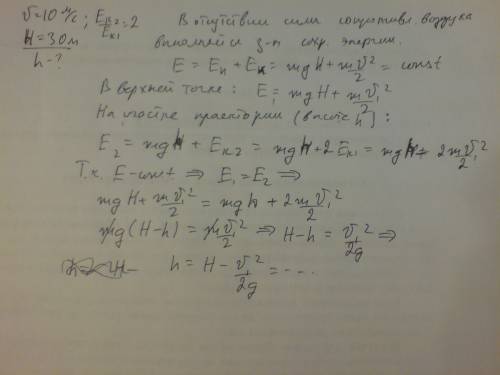 v=10 м/с; Eк2/Eк1=2
H=30м
h-?
В отсутствии силы сопротивл. воздуха
выполняется з-н сохр. энергии.
E = Eп + Eк = mgH + mv²/2 = const
В верхней точке: E₁ = mgH + mv₁²/2
На участке траектории (высоте h):
E₂ = mgh + Eк2 = mgh + 2Eк1 = mgh + 2mv₁²/2
Т.к. E-const ⇒ E₁=E₂ ⇒
mgH + mv₁²/2 = mgh + 2mv₁²/2
mg(H-h) = mv₁²/2 ⇒ H-h = v₁²/2g ⇒
h = H - v₁²/2g = ----